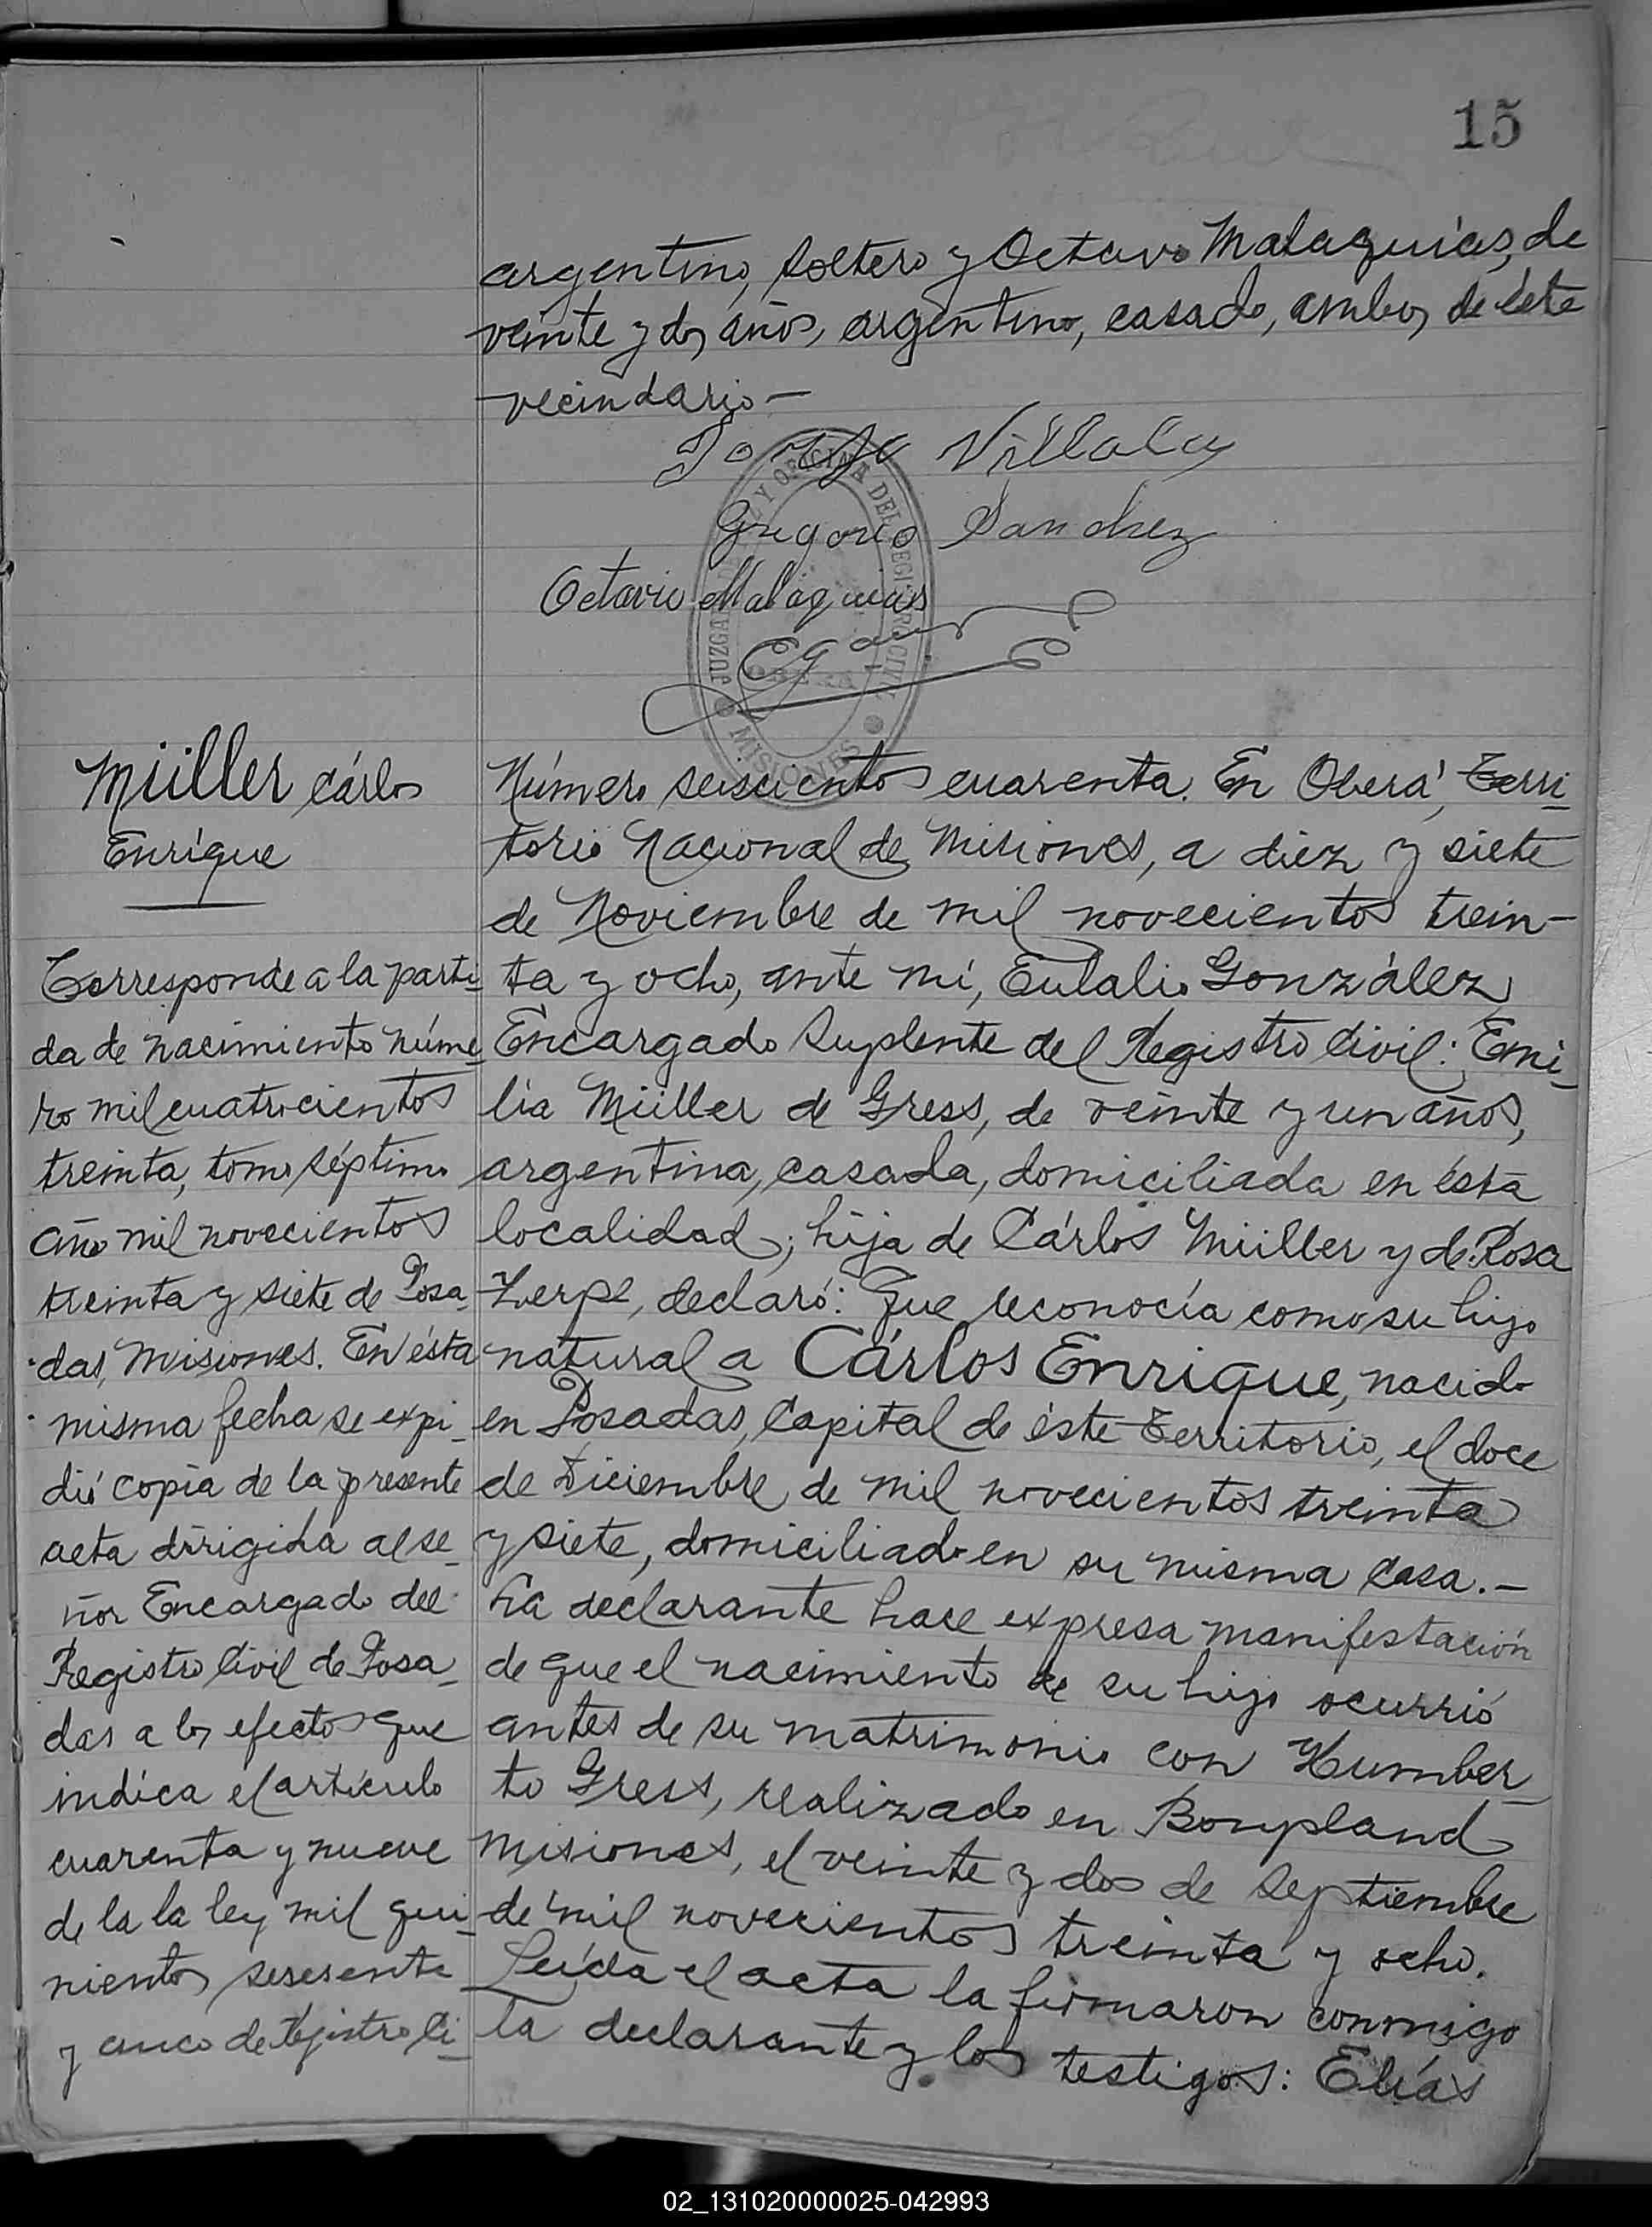 15
argentino, soltero y Octavio Malaquías, de
veinte y dos años, argentino, casado, ambos de éste
vecindario —
Villalay
Gregorio Sanchez
Octavio Malaquias
JUZGADO DE PAZ Y OFICINA DEL REGISTRO CIVIL
OBERA
MISIONES
Müller Cárlos
Enrique
Corresponde a la parti-
da de nacimiento núme-
ro mil cuatrocientos
treinta, tomo séptimo
año mil novecientos
treinta y siete de Posa-
das, Misiones. En ésta
misma fecha se expi-
dió copia de la presente
acta dirigida al se-
ñor Encargado del
Registro Civil de Posa-
das a los efectos que
indica el artículo
cuarenta y nueve
de la la ley mil qui-
nientos sesenta
y cinco de Registro Ci-
Número seiscientos cuarenta. En Oberá, Terri-
torio Nacional de Misiones, a diez y siete
de Noviembre de mil novecientos trein-
ta y ocho, ante mí, Eulalio González
Encargado Suplente del Registro Civil: Emi-
lia Müller de Gress, de veinte y un años,
argentina, casada, domiciliada en ésta
localidad; hija de Cárlos Müller y de Rosa
Zerpe, declaró: Que reconocía como su hijo
natural a Cárlos Enrique, nacido
en Posadas, Capital de éste Territorio, el doce
de Diciembre de mil novecientos treinta
y siete, domiciliado en su misma casa.-
La declarante hace expresa manifestación
de que el nacimiento de su hijo ocurrió
antes de su matrimonio con Humber-
to Gress, realizado en Bonpland
Misiones, el veinte y dos de Septiembre
de mil novecientos treinta y ocho.
Leída el acta la firmaron conmigo
la declarante y los testigos: Elías
02_131020000025-042993